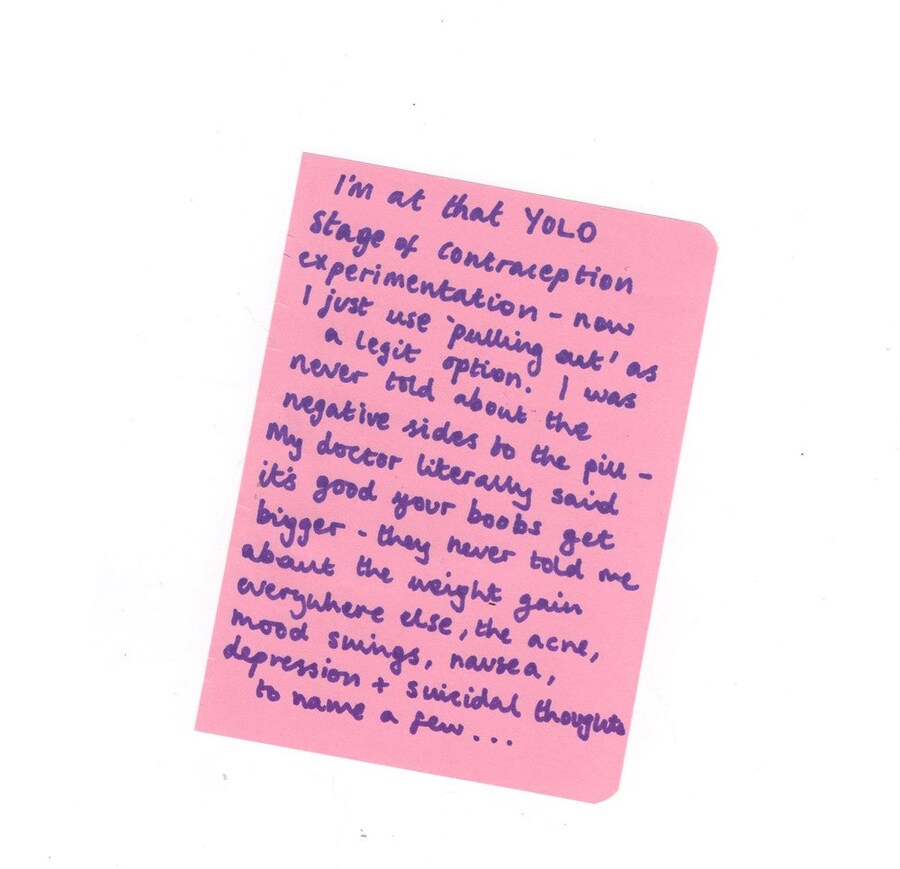 I'm at that YOLO
stage of contraception
experimentation - now
I just use 'pulling out' as
a legit option. I was
never told about the
negative sides to the pill -
My doctor literally said
it's good your boobs get
bigger - they never told me
about the weight gain
everywhere else, the acne,
mood swings, nausea,
depression + suicidal thoughts
to name a few...